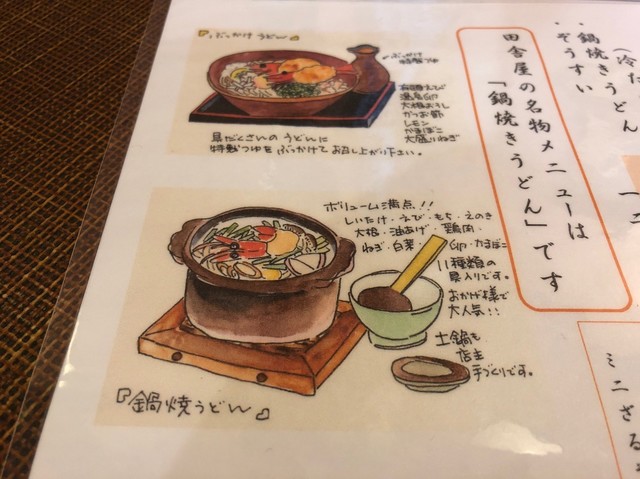 『ぶっかけうどん』
ぶっかけ
特製つゆ
有頭えび
温泉卵
大根おろし
かつお節
レモン
かまぼこ
大盛りねぎ
具だくさんのうどんに
特製つゆをぶっかけてお召し上がり下さい。
ボリューム満点!!
しいたけ・えび・もち・えのき
大根・油あげ・鶏肉・
ねぎ・白菜・卵・かまぼこ
11種類の
具入りです。
おかげ様で
大人気!!
土鍋も
店主
手づくりです。
『鍋焼うどん』
鍋焼きうどん
ぞうすい
田舎屋の名物メニューは
「鍋焼きうどん」です
ミニざる